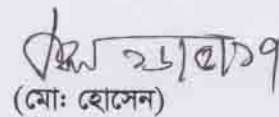 ২১/৫/১৭
(মোঃ হোসেন)